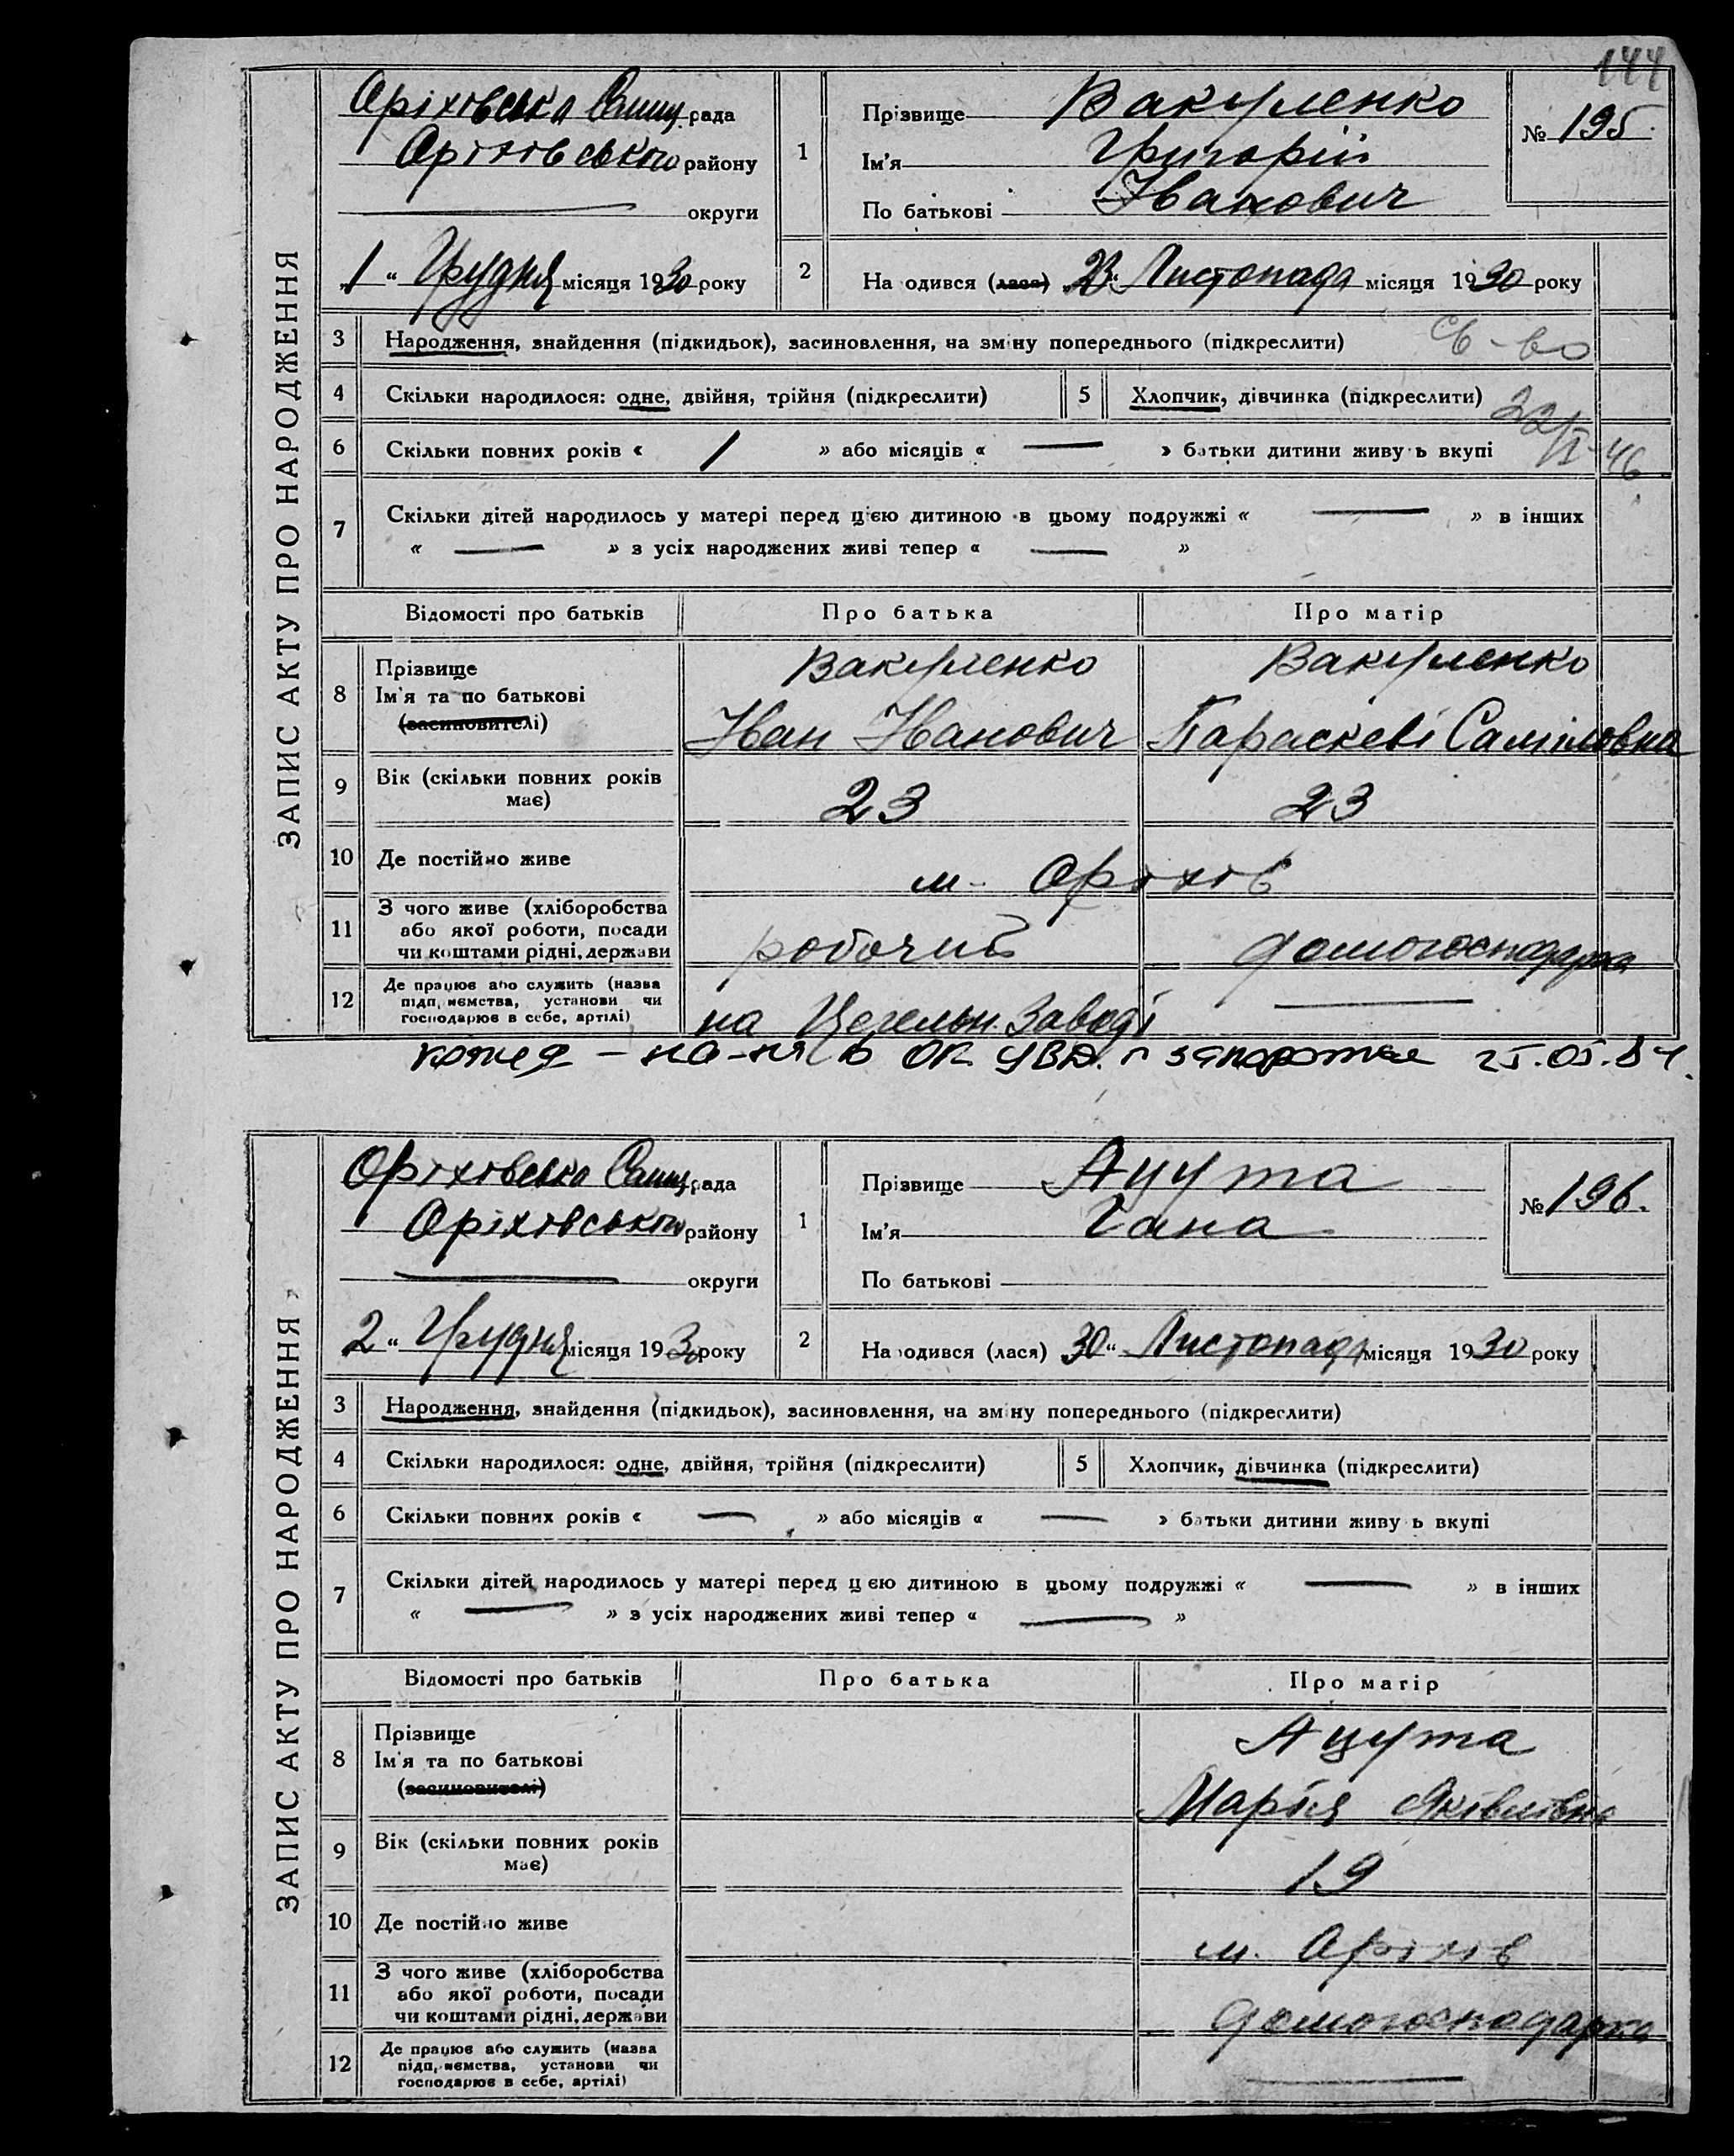 144
ЗАПИС АКТУ ПРО НАРОДЖЕННЯ
Оріхівська Селищ. рада
Оріхівського району
округи
„1“ Грудня місяця 1930 року
1
Прізвище Вакуленко
Ім'я Григорій
По батькові Іванович
№ 195.
2
На одився (лася) „23“ Листопада місяця 1930 року
3 Народження, знайдення (підкидьок), засиновлення, на зміну попереднього (підкреслити)
св-во
4 Скільки народилося: одне, двійня, трійня (підкреслити) 5 Хлопчик, дівчинка (підкреслити)
22/I-46
6 Скільки повних років « 1 » або місяців « — » батьки дитини живуь вкупі
7 Скільки дітей народилось у матері перед цією дитиною в цьому подружжі « — » в інших
« — » з усіх народжених живі тепер « — »
Відомості про батьків Про батька Про матір
8 Прізвище Вакуленко Вакуленко
Ім'я та по батькові
(засиновителі) Іван Іванович Параскеві Саміловна
9 Вік (скільки повних років має) 23 23
10 Де постійно живе м. Оріхів
11 З чого живе (хліборобства
або якої роботи, посади
чи коштами рідні, держави робочий домогосподарка
12 Де працює або служить (назва
підп, иємства, установи чи
господарює в себе, артілі) на Цегельн. Заводі —
в ОК УВД. г Запорожье 25.05.84.
ЗАПИС АКТУ ПРО НАРОДЖЕННЯ
Оріхівська Селищ. рада
Оріхівського району
округи
2 “ Грудня місяця 1930 року
1
Прізвище Ацута
Ім'я Гана
По батькові
№ 196.
2
На одився (лася) 30“ Листопада місяця 1930 року
3 Народження, знайдення (підкидьок), засиновлення, на зміну попереднього (підкреслити)
4 Скільки народилося: одне, двійня, трійня (підкреслити) 5 Хлопчик, дівчинка (підкреслити)
6 Скільки повних років « — » або місяців « — » батьки дитини живуь вкупі
7 Скільки дітей народилось у матері перед цією дитиною в цьому подружжі « — » в інших
« — » з усіх народжених живі тепер « — »
Відомості про батьків Про батька Про матір
8 Прізвище Ацута
Ім'я та по батькові
(засиновителі) Марія Яківлівна
9 Вік (скільки повних років має) 19
10 Де постійно живе м. Оріхів
11 З чого живе (хліборобства
або якої роботи, посади
чи коштами рідні, держави домогосподарка
12 Де працює або служить (назва
підп, иємства, установи чи
господарює в себе, артілі) —